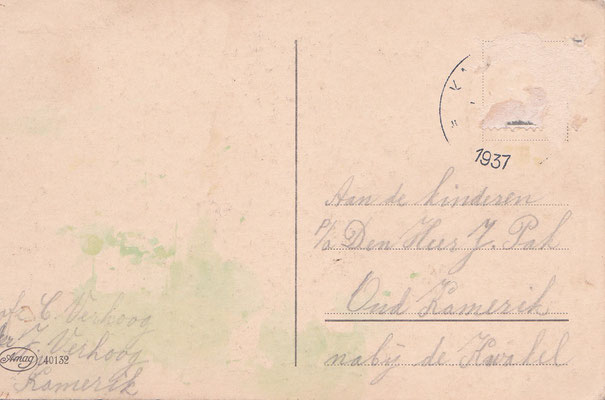 1937
Aan de kinderen
p/a Den Heer J. Pak
Oud Kamerik
nabij de Kwakel
C. Verhoog
Verhoog
Amag 40132
Kamerik